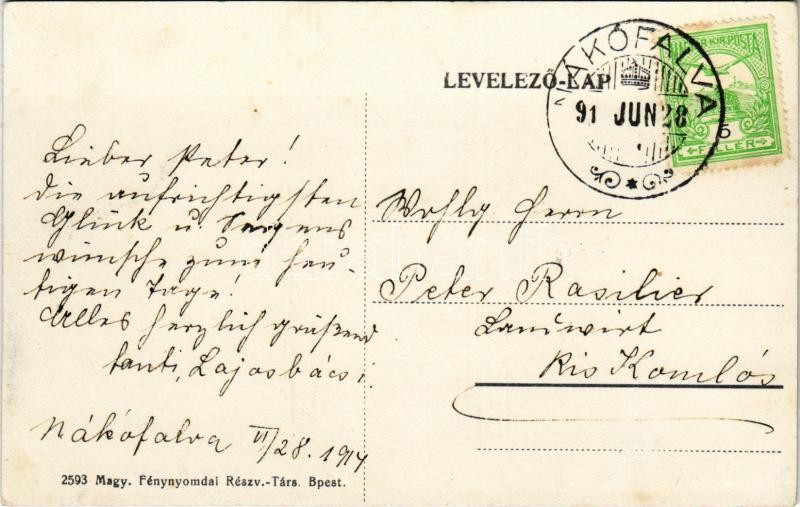 LEVELEZŐ-LAP
NÁKÓFALVA
91 JUN 28
MAGYAR KIR. POSTA
5
FILLÉR
Lieber Peter!
die aufrichtigsten
Glück u. Segens
wünsche zum heu-
tigen Tage!
Alles herzlich grüßend
tanti, Lajosbácsi.
Nákófalva VI/28. 1914
Wohlg Herrn
Peter Rasilier
Landwirt
Kis Komlós
2593 Magy. Fénynyomdai Részv.-Társ. Bpest.